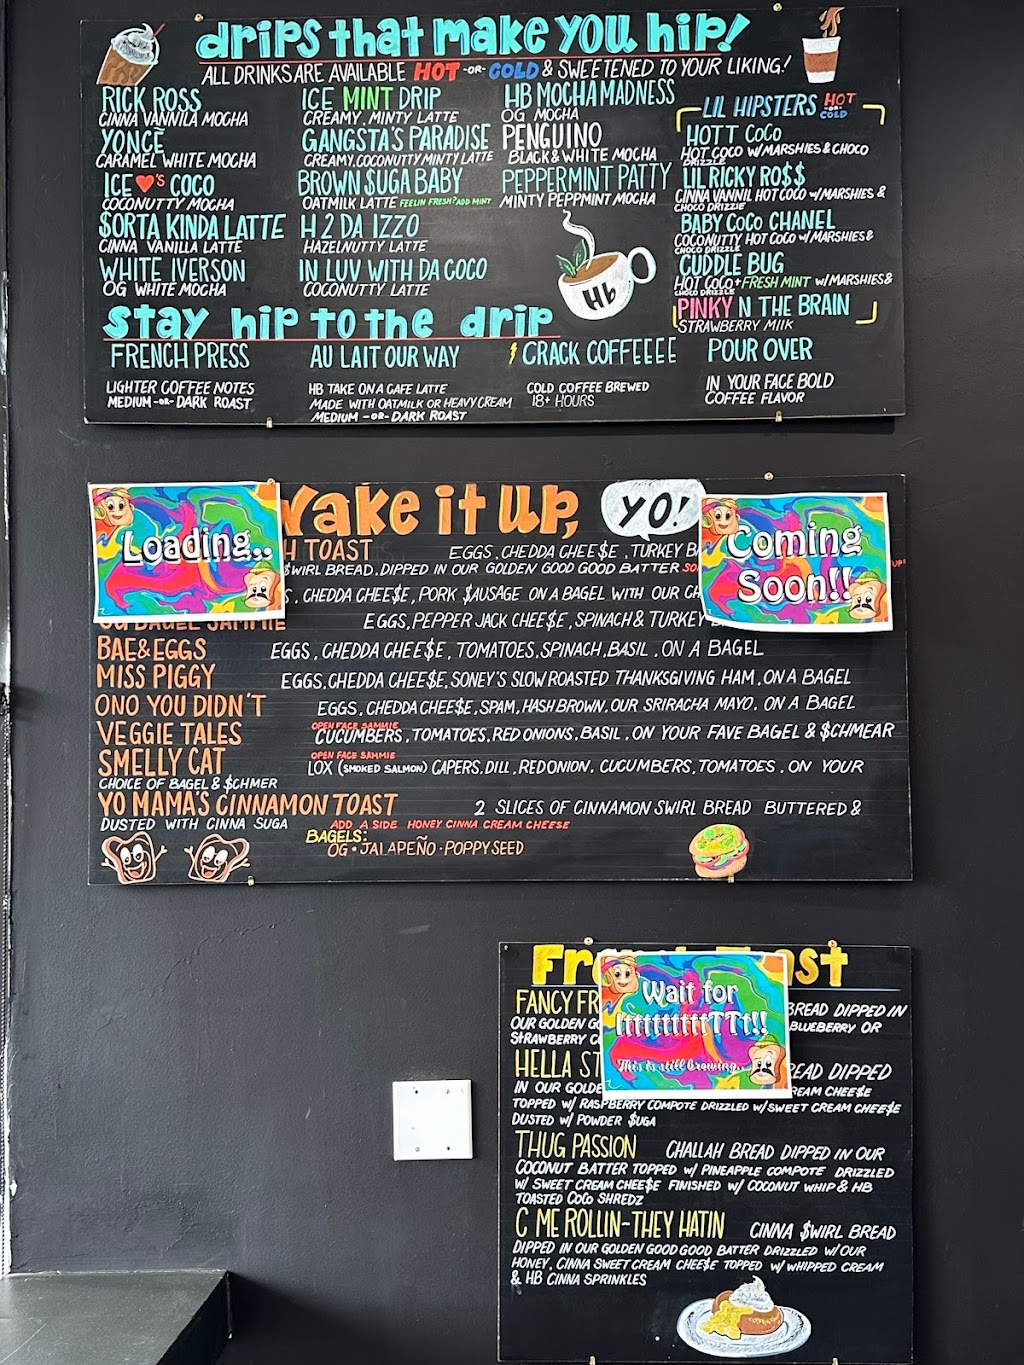 drips that make you hip!
ALL DRINKS ARE AVAILABLE HOT -OR- COLD & SWEETENED TO YOUR LIKING!
RICK ROSS
CINNA VANNILA MOCHA
YONCÈ
CARAMEL WHITE MOCHA
ICE ♥'S COCO
COCONUTTY MOCHA
$ORTA KINDA LATTE
CINNA VANILLA LATTE
WHITE IVERSON
OG WHITE MOCHA
ICE MINT DRIP
CREAMY, MINTY LATTE
GANGSTA'S PARADISE
CREAMY, COCONUTTY MINTY LATTE
BROWN $UGA BABY
OATMILK LATTE FEELIN FRESH? ADD MINT
H 2 DA IZZO
HAZELNUTTY LATTE
IN LUV WITH DA COCO
COCONUTTY LATTE
HB MOCHA MADNESS
OG MOCHA
PENGUINO
BLACK & WHITE MOCHA
PEPPERMINT PATTY
MINTY PEPPMINT MOCHA
Hb
LIL HIPSTERS HOT -OR- COLD
HOTT COCO
HOT COCO W/MARSHIES & CHOCO
DRIZZLE
LIL RICKY RO$$
CINNA VANNIL HOT COCO w/MARSHIES &
CHOCO DRIZZLE
BABY COCO CHANEL
COCONUTTY HOT COCO w/MARSHIES &
CHOCO DRIZZLE
CUDDLE BUG
HOT COCO + FRESH MINT w/MARSHIES &
CHOCO DRIZZLE
PINKY N THE BRAIN
STRAWBERRY MIlK
stay hip to the drip
FRENCH PRESS
LIGHTER COFFEE NOTES
MEDIUM -OR- DARK ROAST
AU LAIT OUR WAY
HB TAKE ON A CAFE LATTE
MADE WITH OATMILK OR HEAVY CREAM
MEDIUM -OR- DARK ROAST
CRACK COFFEEEE
COLD COFFEE BREWED
18+ HOURS
POUR OVER
IN YOUR FACE BOLD
COFFEE FLAVOR
Wake it up, YO!
Loading..
Coming
Soon!!
H TOAST EGGS, CHEDDA CHEE$E, TURKEY B
$WIRL BREAD, DIPPED IN OUR GOLDEN GOOD GOOD BATTER
, CHEDDA CHEE$E, PORK $AUSAGE ON A BAGEL WITH OUR CH
OG BAGEL SAMMIE EGGS, PEPPER JACK CHEE$E, SPINACH & TURKEY
BAE & EGGS EGGS, CHEDDA CHEE$E, TOMATOES, SPINACH, BASIL, ON A BAGEL
MISS PIGGY EGGS, CHEDDA CHEE$E, SONEY'S SLOW ROASTED THANKSGIVING HAM, ON A BAGEL
ONO YOU DIDN'T EGGS, CHEDDA CHEE$E, SPAM, HASH BROWN, OUR SRIRACHA MAYO, ON A BAGEL
OPEN FACE SAMMIE
VEGGIE TALES CUCUMBERS, TOMATOES, RED ONIONS, BASIL, ON YOUR FAVE BAGEL & $CHMEAR
OPEN FACE SAMMIE
SMELLY CAT LOX (SMOKED SALMON) CAPERS, DILL, RED ONION, CUCUMBERS, TOMATOES, ON YOUR
CHOICE OF BAGEL & $CHMER
YO MAMA'S CINNAMON TOAST 2 SLICES OF CINNAMON SWIRL BREAD BUTTERED &
DUSTED WITH CINNA SUGA ADD A SIDE HONEY CINNA CREAM CHEESE
BAGELS:
OG · JALAPEÑO · POPPY SEED
Fr st
Wait for
Ittttttttttttt!!
This is still brewing..
FANCY FR BREAD DIPPED IN
OUR GOLDEN G BLUEBERRY OR
STRAWBERRY C
HELLA ST EAD DIPPED
IN OUR GOLDE REAM CHEE$E
TOPPED W/ RASPBERRY COMPOTE DRIZZLED W/ SWEET CREAM CHEE$E
DUSTED W/ POWDER $UGA
THUG PASSION CHALLAH BREAD DIPPED IN OUR
COCONUT BATTER TOPPED w/ PINEAPPLE COMPOTE DRIZZLED
W/ SWEET CREAM CHEE$E FINISHED w/ COCONUT WHIP & HB
TOASTED COCO SHREDZ
C ME ROLLIN-THEY HATIN CINNA $WIRL BREAD
DIPPED IN OUR GOLDEN GOOD GOOD BATTER DRIZZLED W/ OUR
HONEY, CINNA SWEET CREAM CHEE$E TOPPED W/ WHIPPED CREAM
& HB CINNA SPRINKLES